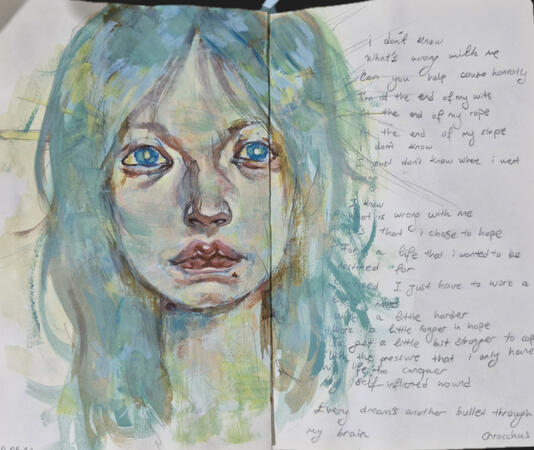 i don't know
what's wrong with me
Can you help cause honestly
I'm at the end of my wits
the end of my rope
the end of my slope
don't know
I just don't know where i went
wrong
I know
what is wrong with me
is that i chose to hope
For a life that i wanted to be
destined for
I just have to work a
a little harder
work a little longer in hope
to get a little bit stronger to cope
with the pressure that i only have
my life to conquer
my self inflicted wound
Every dream's another bullet through
my brain